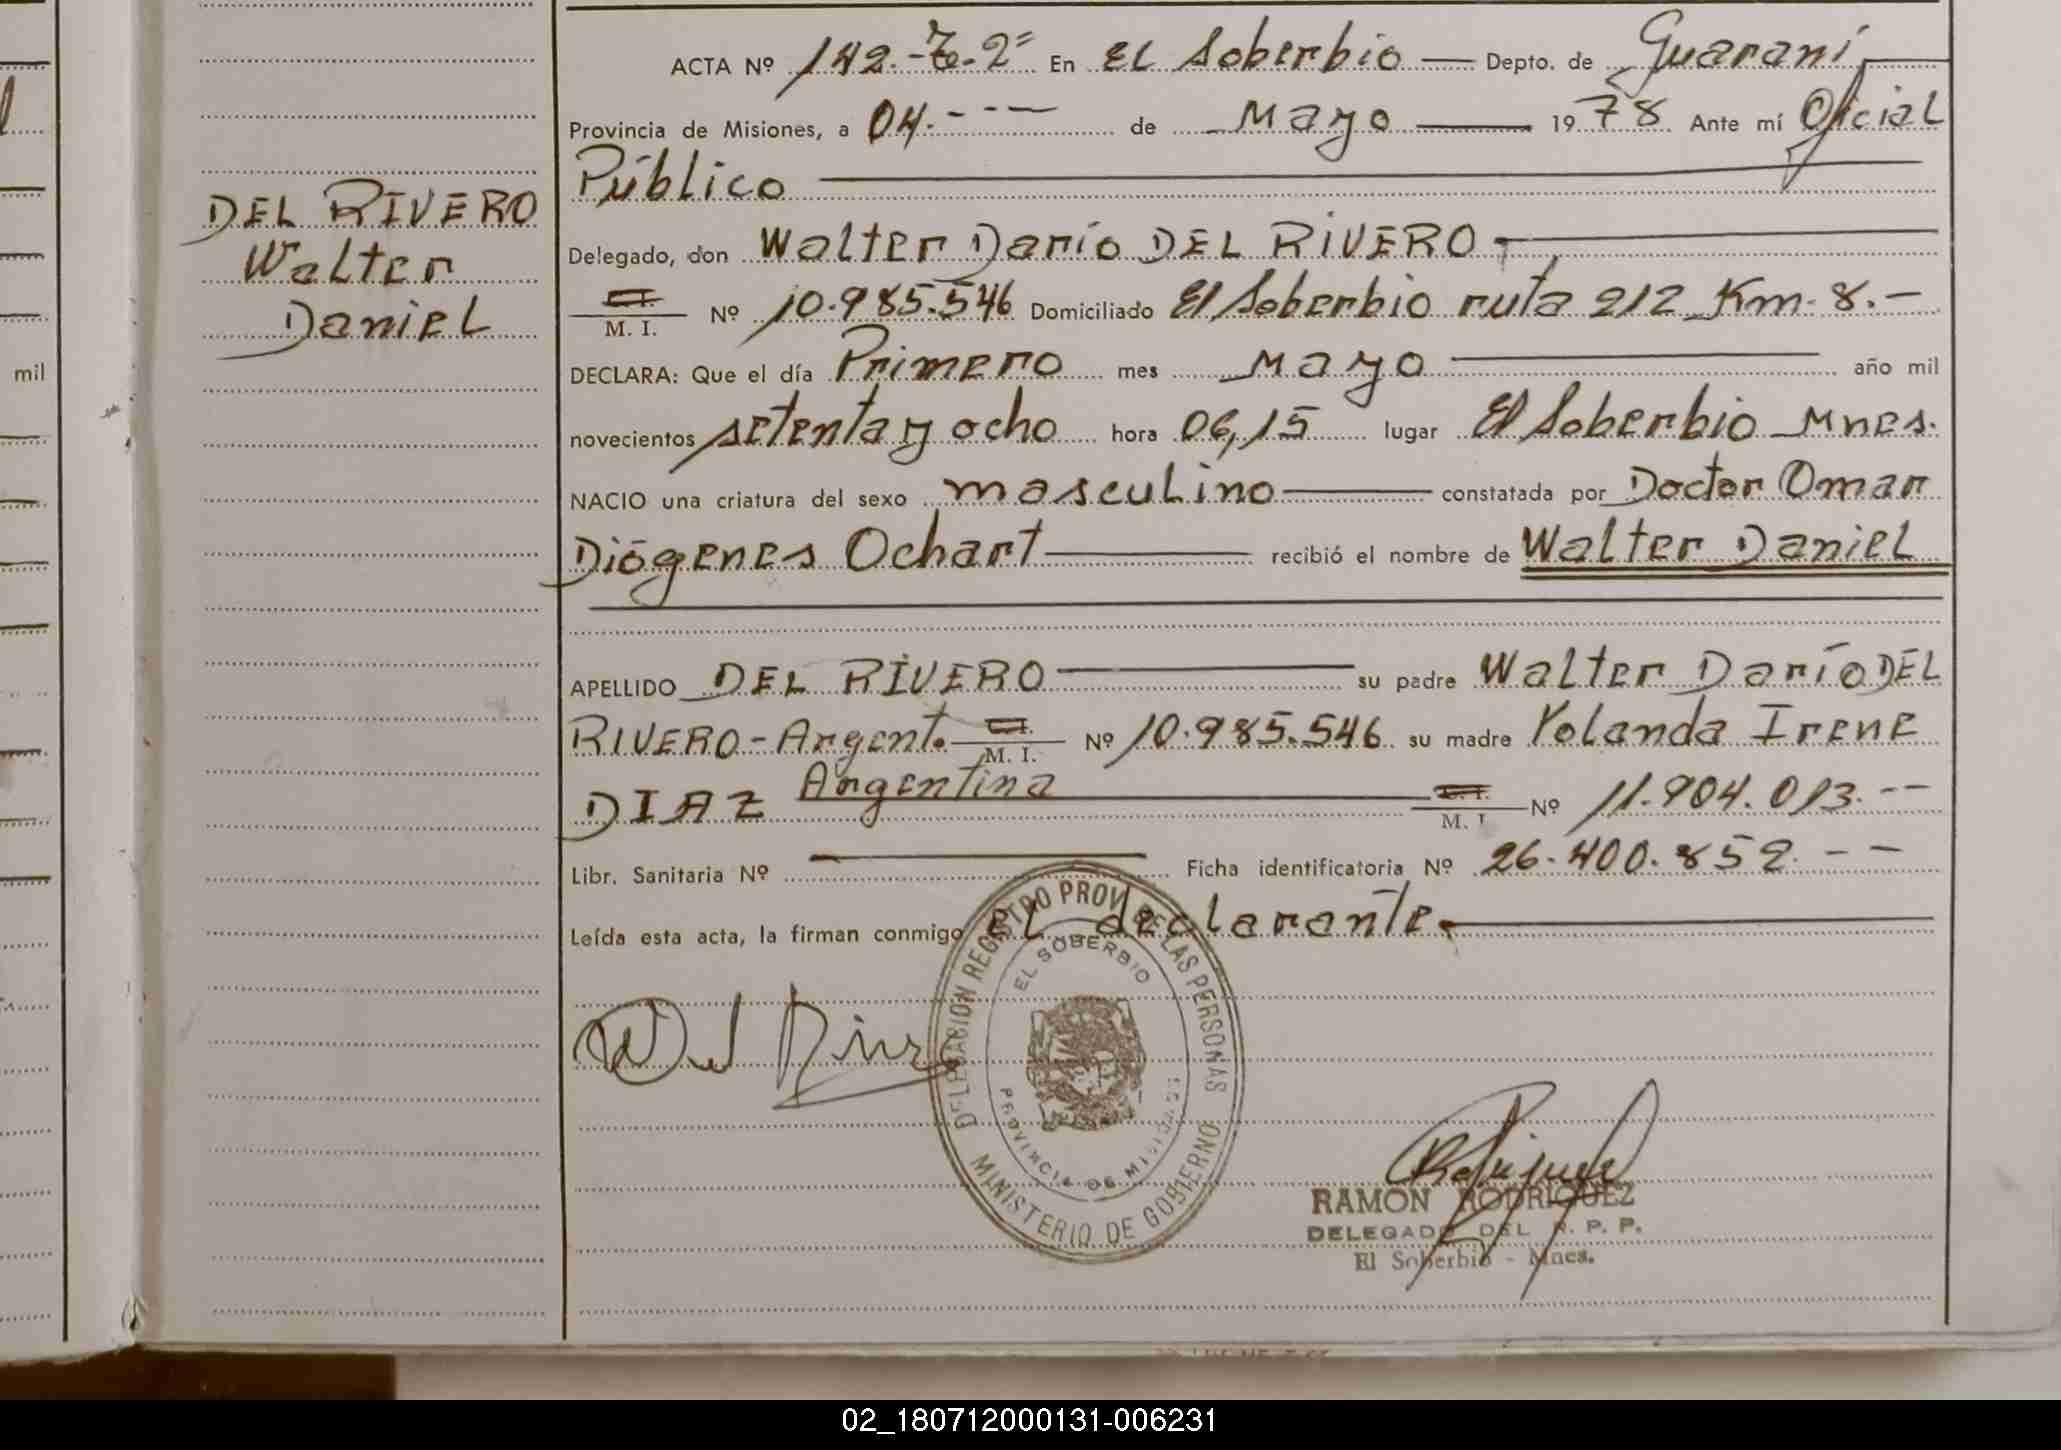 ACTA Nº 142.-T.2º En El Soberbio — Depto. de Guaraní
Provincia de Misiones, a 04.- - — de Mayo — 1978 Ante mí Oficial
Público
DEL RIVERO
Walter
Daniel
Delegado, don Walter Darío DEL RIVERO
C.I. M. I. Nº 10.985.546 Domiciliado El Soberbio ruta 212 Km. 8.-
DECLARA: Que el día Primero mes Mayo año mil
mil
novecientos setenta y ocho hora 06,15 lugar El Soberbio Mnes.
NACIO una criatura del sexo masculino constatada por Doctor Omar
Diógenes Ochart recibió el nombre de Walter Daniel
APELLIDO DEL RIVERO su padre Walter Darío DEL
RIVERO-Argent. C.I. M. I. Nº 10.985.546 su madre Yolanda Irene
DIAZ Argentina C.I. M. I. Nº 11.904.013.--
Libr. Sanitaria Nº — Ficha identificatoria Nº 26.400.852.--
Leída esta acta, la firman conmigo el declarante.
DELEGACIÓN REGISTRO PROV. DE LAS PERSONAS
EL SOBERBIO
PROVINCIA DE MISIONES
MINISTERIO DE GOBIERNO
RAMON RODRIGUEZ
DELEGADO DEL R. P. P.
El Soberbio - Mnes.
02_180712000131-006231